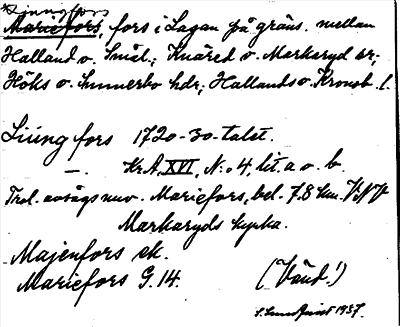 Ljungfors
Mariefors, fors i Lagan på gräns. mellan
Halland o. Smål.; Knäred o. Markaryd sr;
Höks o. Sunnerbo hdr; Hallands o. Kronob. l.
Liüngfors 1720-30-talet.
— Kr. A. XVI, N:o 4, lit. a o. b.
Trol. avsågs nuv. Mariefors, bel. 7.8 km. V.N.V.
Markaryds kyrka.
Majenfors ek.
Mariefors G. 14.
(Vänd!)
1937.